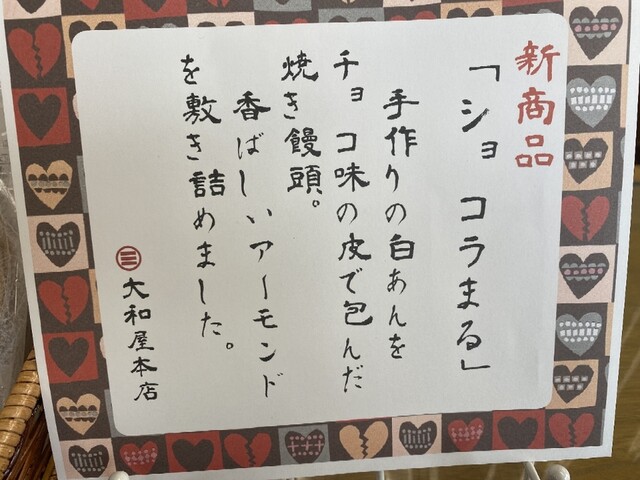 新商品
「ショコラまる」
手作りの白あんを
チョコ味の皮で包んだ
焼き饅頭。
香ばしいアーモンド
を敷き詰めました。
㊂大和屋本店